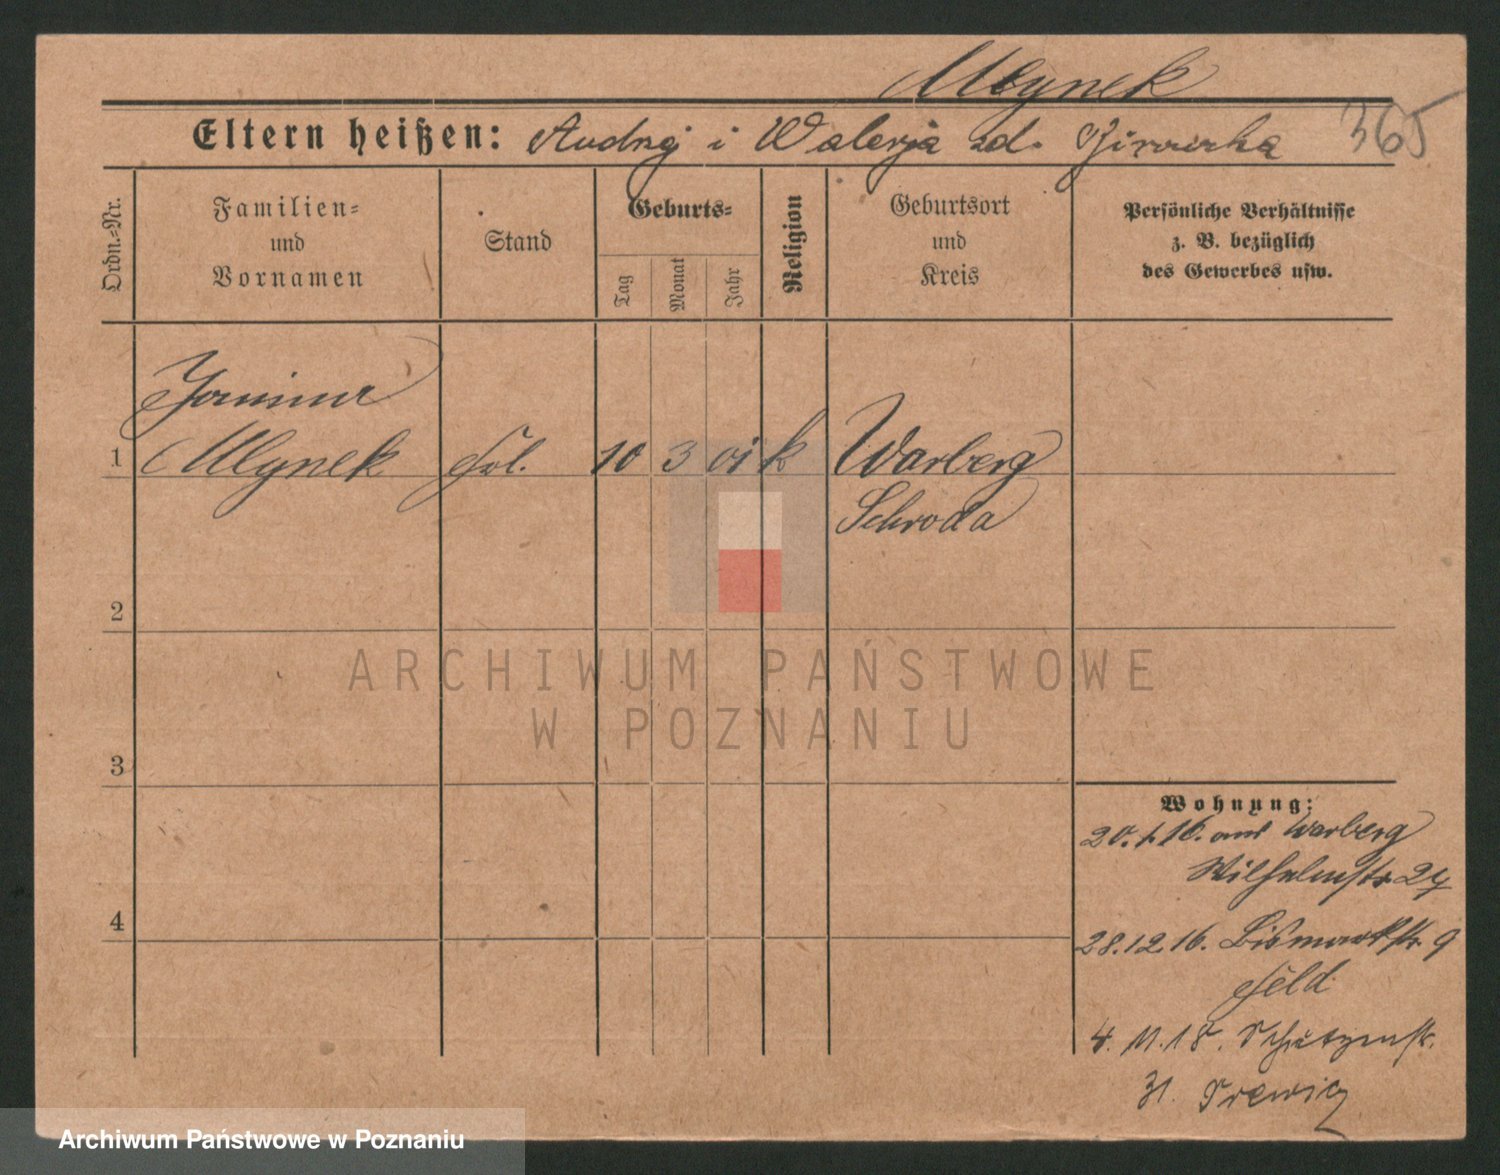 Młynek
365
Eltern heißen: Andrzej i Walerja zd.
Ordn.-Nr.
Familien-
und
Vornamen
Stand
Geburts-
Tag
Monat
Jahr
Religion
Geburtsort
und
Kreis
Persönliche Verhältnisse
z. B. bezüglich
des Gewerbes usw.
1
Młynek frl. 10 3 01 k Warberg
Schroda
2
3
4
Wohnung:
20.1.16. aus Warberg
Wilhelmstr 27
28.12.16. Bismarckstr. 9
Feld
4. 11. 18. Schützenstr.
31.
ARCHIWUM PAŃSTWOWE
W POZNANIU
Archiwum Państwowe w Poznaniu